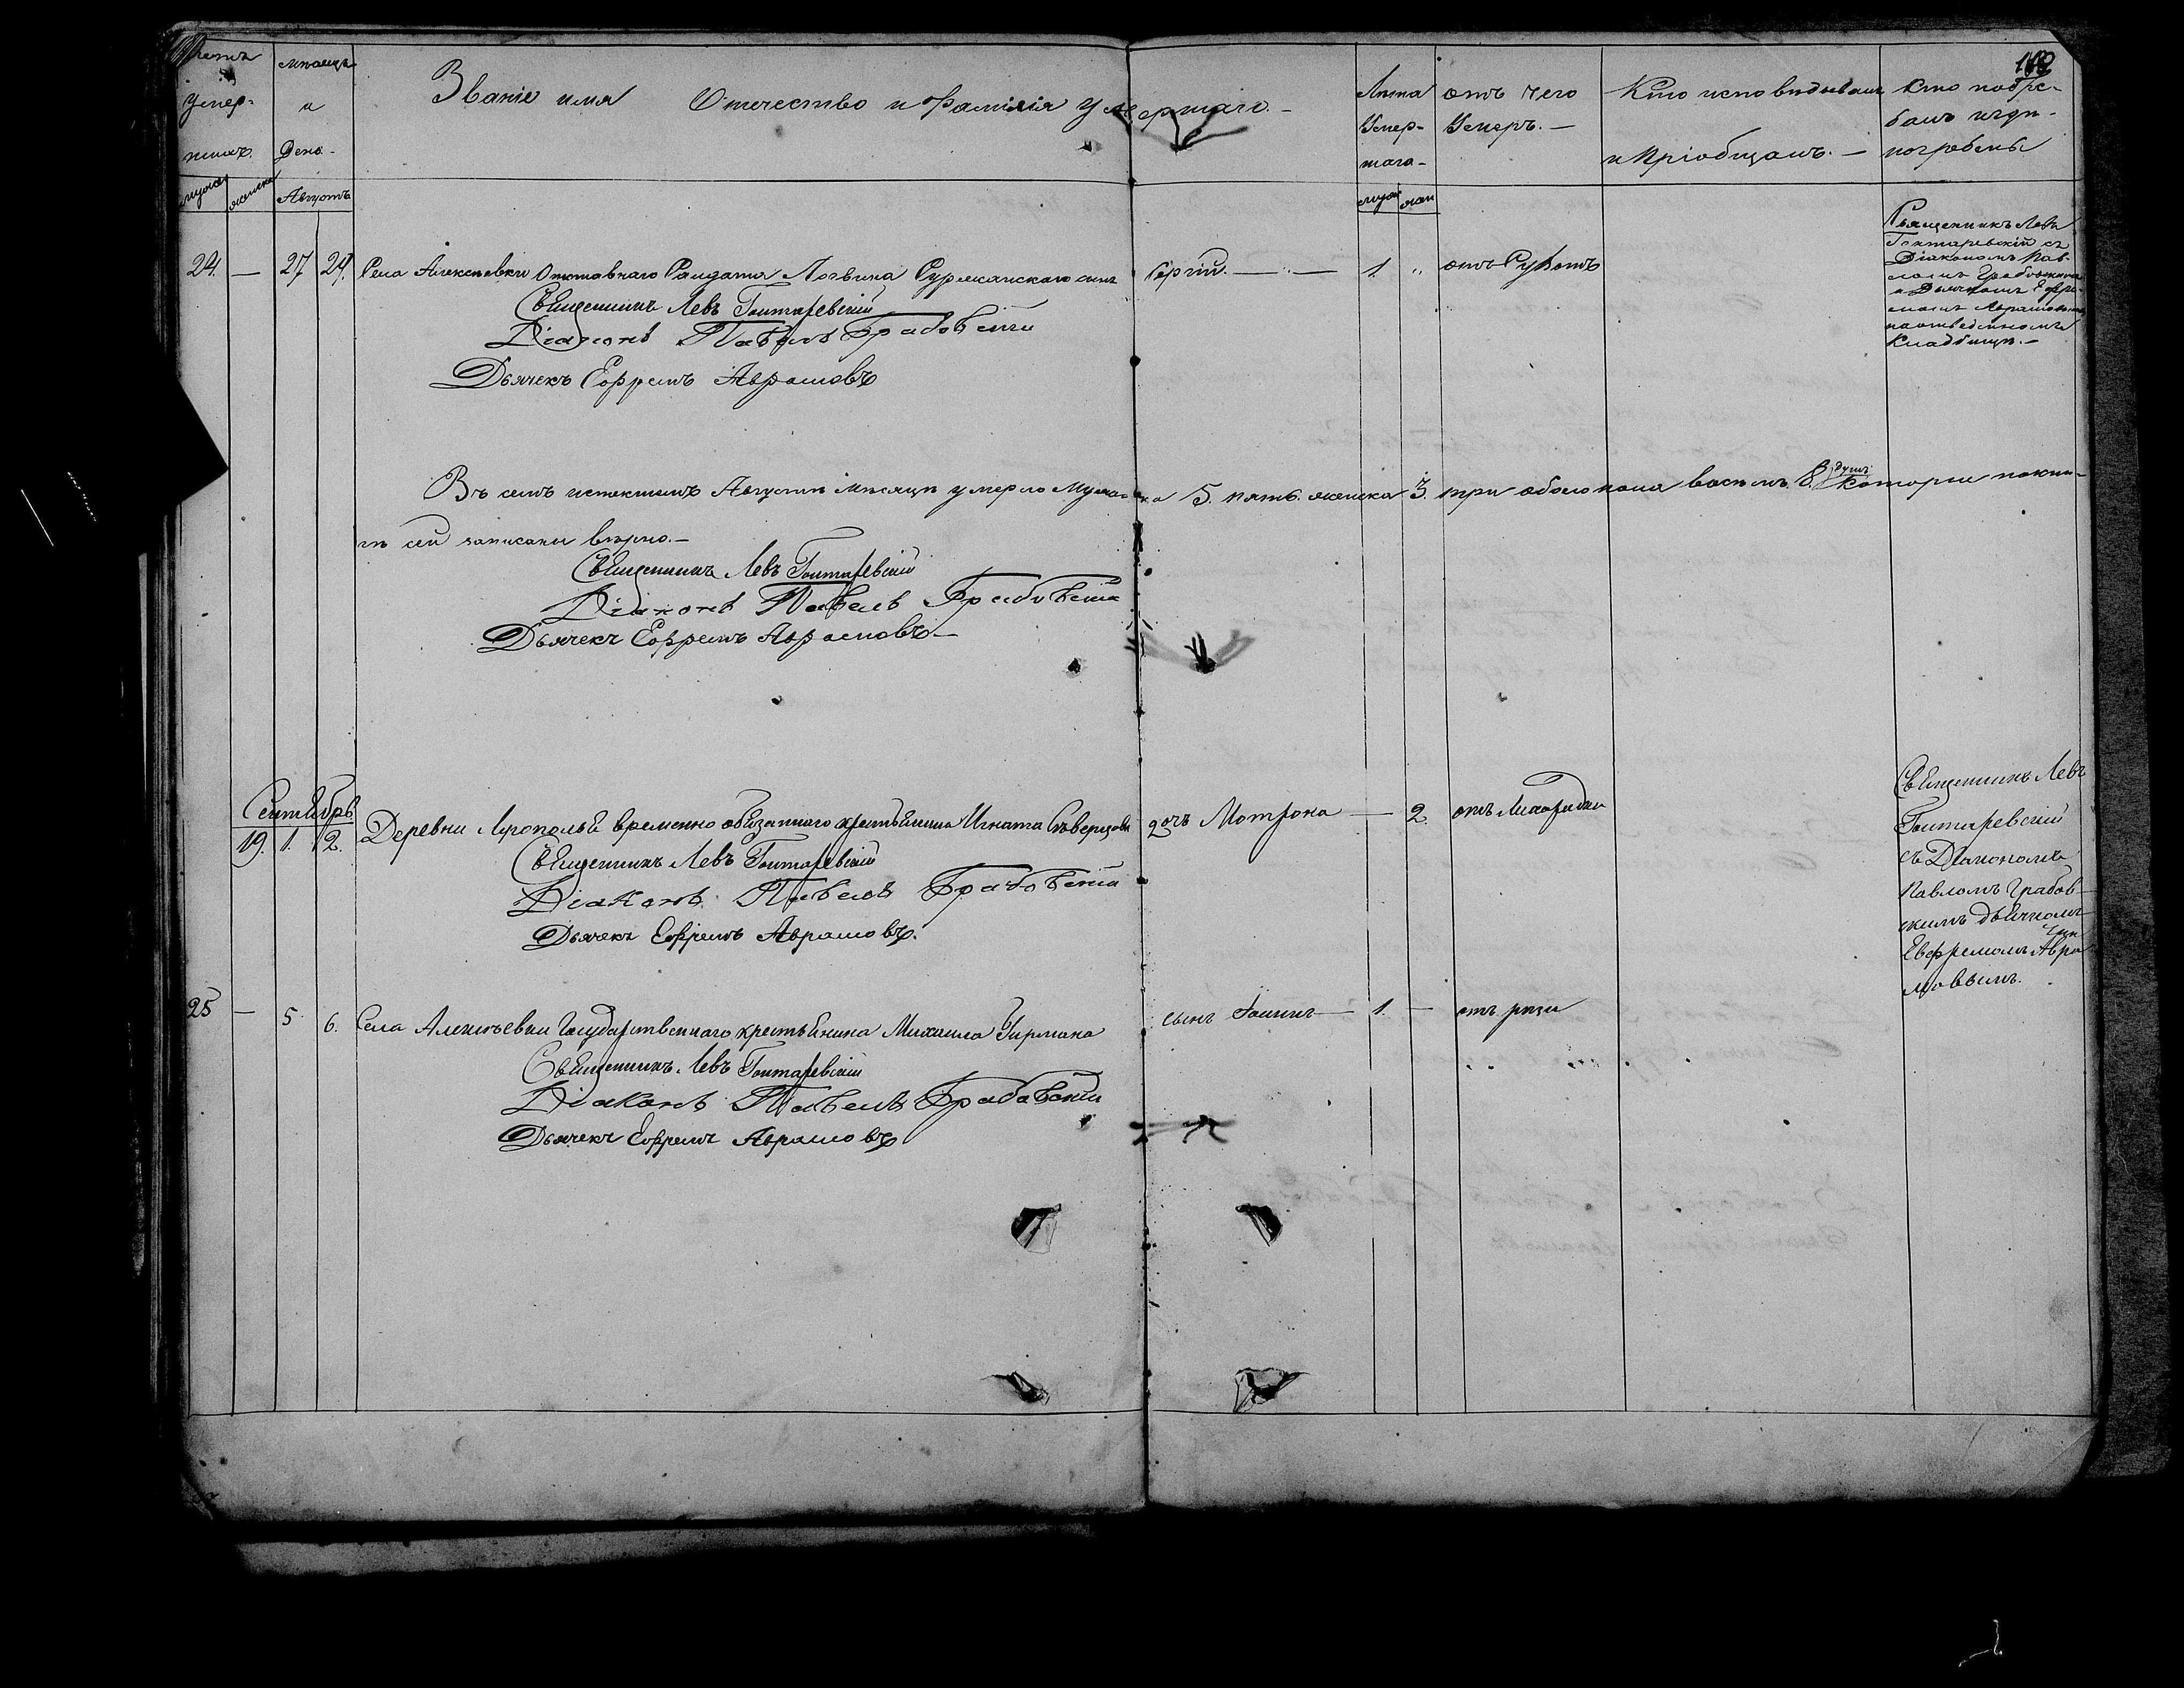 Счетъ умер-шихъ. Мѣсяцъ и День. Званіе имя Отечество и Фамилія умершаго. Лѣта Умер-шаго отъ чего Умеръ. Кто исповѣдывалъ и Пріобщалъ. Кто погре-балъ и гдѣ погребены
мужск женска Августъ муж жен
24. — 27 29. Села Алексѣевки Отставнаго Салдата Логвина Сурманскаго сынъ Сергій. 1. „ отъ Сухотъ
Священникъ Левъ
Гонтаревскій съ
Діакономъ Пав-
ломъ Грабовскимъ
и Дьячкомъ Ефре-
момъ Аврамовымъ
на отведенномъ
Кладбищѣ.—
Священникъ Левъ Гонтаревскій
Діаконъ Павелъ Грабовскій
Дьячекъ Ефремъ Аврамовъ
Въ семъ истекшемъ Августѣ мѣсяцѣ умерло Мужеска 5. пять. женска 3. три обоего пола восемь 8. душъ которые по кни-
гѣ сей записаны вѣрно.—
Священникъ Левъ Гонтаревскій
Діаконъ Павелъ Грабовскій
Дьячекъ Ефремъ Аврамовъ
Сентябрь
19. 1. 2. Деревни временно обязаннаго крестьянина Игната дочь Мотрона — 2. отъ
Священникъ Левъ
Гонтаревскій
съ Діакономъ
Павломъ Грабов-
скимъ дьячкомъ
Евфремомъ Авра-
мовымъ.
Священникъ Левъ Гонтаревскій
Діаконъ Павелъ Грабовскій
Дьячекъ Ефремъ Аврамовъ.
25 — 5. 6. Села Алексѣевки Государственнаго крестьянина Михаила сынъ Іоаннъ 1. — отъ
Священникъ Левъ Гонтаревскій
Діаконъ Павелъ Грабовскій
Дьячекъ Ефремъ Аврамовъ